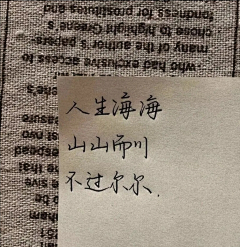 who had exclusive access to
many of the author's papers,
chose to highlight Greene's
fondness for prostitutes and
人生海海
山山而川
不过尔尔.